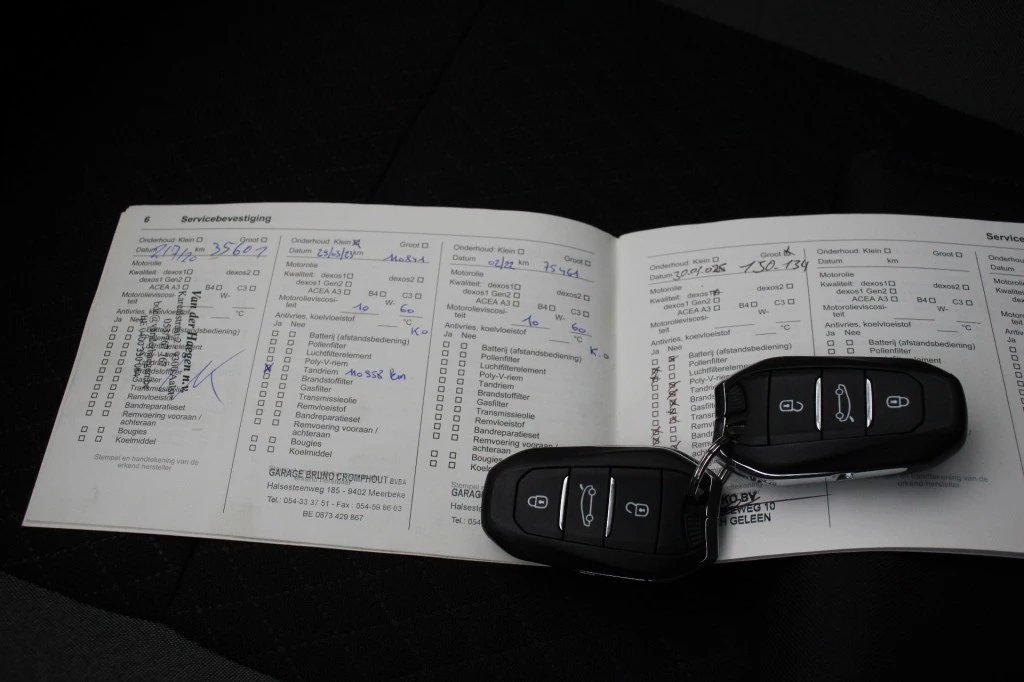 6 Servicebevestiging
Onderhoud: Klein Groot
Datum km 35601
Motorolie
Kwaliteit: dexos1 dexos2
dexos1 Gen2
ACEA A3 B4 C3
Motorolieviscosi- W-
teit
Antivries, koelvloeistof °C
Ja Nee
Van der Haegen n.v.
Remvloeistof
Bandreparatieset
Remvoering vooraan /
achteraan
Bougies
Koelmiddel
Stempel en handtekening van de
erkend hersteller
Onderhoud: Klein Groot
Datum km 110841
Motorolie
Kwaliteit: dexos1 dexos2
dexos1 Gen2
ACEA A3 B4 C3
Motorolieviscosi- 10 W- 60
teit
Antivries, koelvloeistof °C
Ja Nee K.o
Batterij (afstandsbediening)
Pollenfilter
Luchtfilterelement
Poly-V-riem
Tandriem 110958 km
Brandstoffilter
Gasfilter
Transmissieolie
Remvloeistof
Bandreparatieset
Remvoering vooraan /
achteraan
Bougies
Koelmiddel
GARAGE BRUNO CROMPHOUT BVBA
Halsesteenweg 185 - 9402 Meerbeke
Tel.: 054-33 37 51 - Fax : 054-59 86 63
BE 0873 429 867
Onderhoud: Klein Groot
Datum 02/22 km 75461
Motorolie
Kwaliteit: dexos1 dexos2
dexos1 Gen2
ACEA A3 B4 C3
Motorolieviscosi- 10 W- 60
teit
Antivries, koelvloeistof °C
Ja Nee K.o
Batterij (afstandsbediening)
Pollenfilter
Luchtfilterelement
Poly-V-riem
Tandriem
Brandstoffilter
Gasfilter
Transmissieolie
Remvloeistof
Bandreparatieset
Remvoering vooraan /
achteraan
Bougies
Stempel
GARAG
Halses
Tel.: 054
Service
Onderhoud: Klein Groot
Datum 130-134
Motorolie
Kwaliteit: dexos1 dexos2
dexos1 Gen2
ACEA A3 B4 C3
Motorolieviscosi- W-
teit
Antivries, koelvloeistof °C
Ja Nee
Batterij (afstandsbediening)
Pollenfilter
Luchtfilterelement
Poly-V-riem
Tandriem
KO BV
EWEG 10
GELEEN
Onderhoud: Klein Groot
Datum km
Motorolie
Kwaliteit: dexos1 dexos2
dexos1 Gen2
ACEA A3 B4 C3
Motorolieviscosi- W-
teit
Antivries, koelvloeistof °C
Ja Nee
Batterij (afstandsbediening)
Pollenfilter